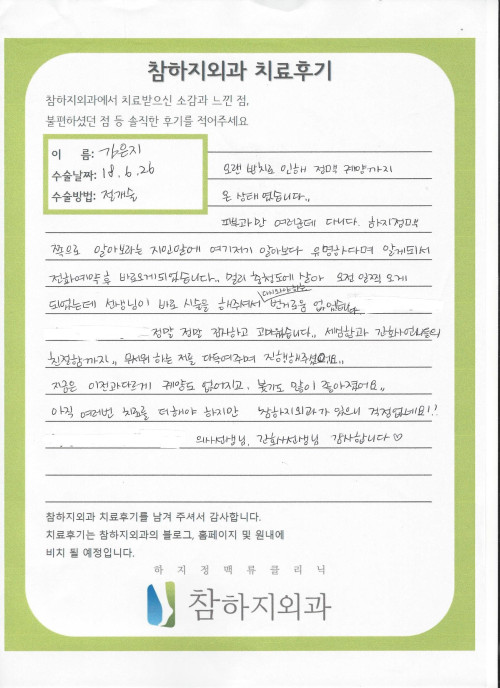 참하지외과 치료후기
참하지외과에서 치료받으신 소감과 느낀 점,
불편하셨던 점 등 솔직한 후기를 적어주세요
이 름: 김은지
수술날짜: 18. 6. 26
수술방법: 정개술
오랜 방치로 인해 정맥 궤양까지
온 상태였습니다..
피부과만 여러군데 다니다. 하지정맥
쪽으로 알아보라는 지인말에 여기저기 알아보다 유명하다며 알게되서
전화예약 후 바로오게되었습니다.. 멀리 충청도에 살아 오전 일찍 오게
되었는데 선생님이 바로 시술을 해주셔서 다시와야하는 번거로움 없었습니다.
정말 정말 감사하고 고마웠습니다.. 세심함과 간호사언니들의
친절함까지.. 무서워 하는 저를 다독여주며 진행해주셨어요..
지금은 이전과다르게 궤양도 없어지고, 붓기도 많이 좋아졌어요..
아직 여러번 치료를 더해야 하지만 참하지외과가 있으니 걱정없네요!!
의사선생님, 간호사선생님 감사합니다 ♡
참하지외과 치료후기를 남겨 주셔서 감사합니다.
치료후기는 참하지외과의 블로그, 홈페이지 및 원내에
비치 될 예정입니다.
하지정맥류클리닉
참하지외과